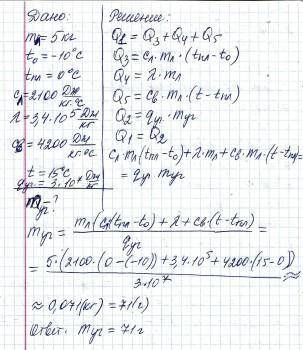 Дано:
m_л = 5 кг
t₀ = -10°C
t_пл = 0°C
c_л = 2100 Дж/кг·°C
λ = 3,4·10⁵ Дж/кг
c_в = 4200 Дж/кг·°C
t = 15°C
q_уг = 3·10⁷ Дж/кг
m_уг - ?
Решение:
Q₁ = Q₃ + Q₄ + Q₅
Q₃ = c_л · m_л · (t_пл - t₀)
Q₄ = λ · m_л
Q₅ = c_в · m · (t - t_пл)
Q₂ = q_уг · m_уг
Q₁ = Q₂
c_л · m_л (t_пл - t₀) + λ · m_л + c_в · m · (t - t_пл) =
= q_уг m_уг
m_уг = m_л (c_л (t_пл - t₀) + λ + c_в · (t - t_пл)) / q_уг =
= 5 · (2100 · (0 - (-10)) + 3,4 · 10⁵ + 4200 (15 - 0)) / 3·10⁷ ≈
≈ 0,071 (кг) = 71 (г)
Ответ: m_уг = 71 г